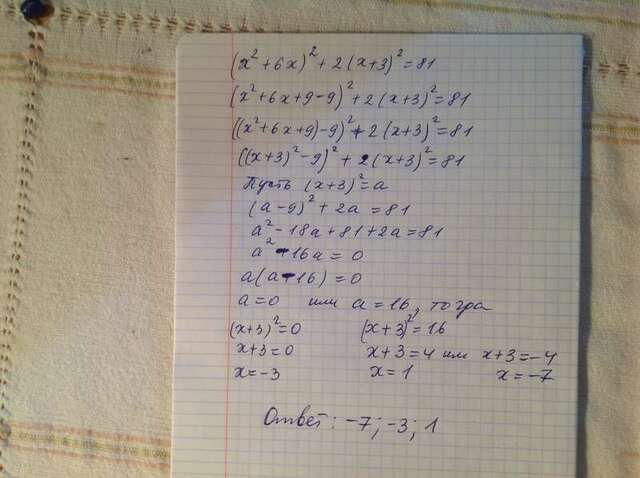 (x² + 6x)² + 2(x+3)² = 81
(x² + 6x + 9 - 9)² + 2(x+3)² = 81
((x² + 6x + 9) - 9)² + 2(x+3)² = 81
((x+3)² - 9)² + 2(x+3)² = 81
Пусть (x+3)² = a
(a - 9)² + 2a = 81
a² - 18a + 81 + 2a = 81
a² - 16a = 0
a(a - 16) = 0
a = 0 или a = 16, тогда
(x+3)² = 0 (x+3)² = 16
x+3 = 0 x+3 = 4 или x+3 = -4
x = -3 x = 1 x = -7
Ответ: -7; -3; 1